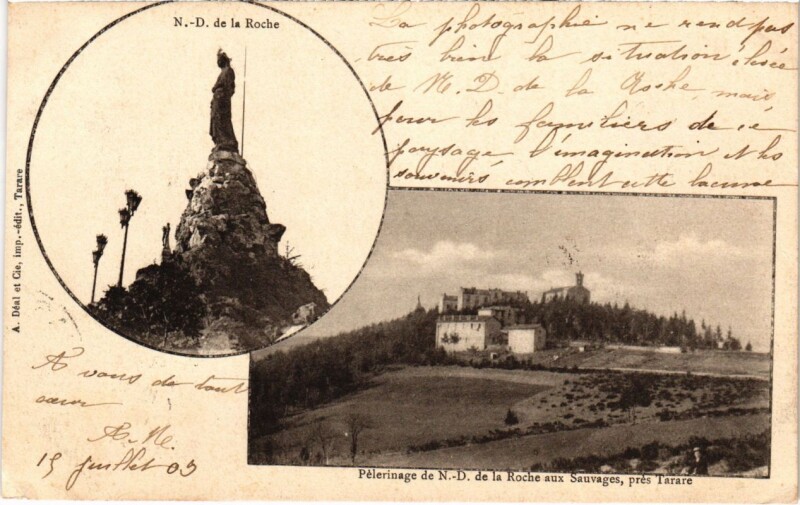 N.-D. de la Roche
La photographie ne rend pas
très bien la situation élevée
de N. D. de la Roche, mais
pour les familiers de ce
paysage l'imagination et les
souvenirs comblent cette lacune
A. Déal et Cie, imp.-édit., Tarare
A vous de tout
cœur
A. N.
15 juillet 03
Pèlerinage de N.-D. de la Roche aux Sauvages, près Tarare